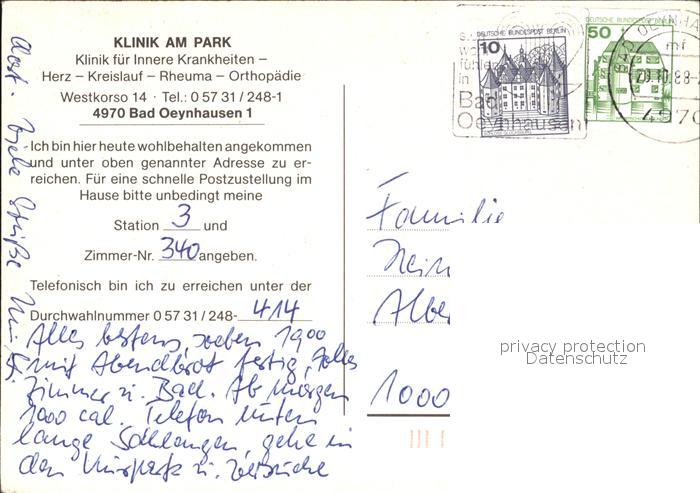 KLINIK AM PARK
Klinik für Innere Krankheiten –
Herz – Kreislauf – Rheuma – Orthopädie
Westkorso 14 · Tel.: 0 57 31 / 248-1
4970 Bad Oeynhausen 1
Ich bin hier heute wohlbehalten angekommen
und unter oben genannter Adresse zu er-
reichen. Für eine schnelle Postzustellung im
Hause bitte unbedingt meine
Station 3 und
Zimmer-Nr. 340 angeben.
Telefonisch bin ich zu erreichen unter der
Durchwahlnummer 0 57 31 / 248- 414
Alles bestens, soeben 1900
mit Abendbrot fertig, tolles
Zimmer u. Bad. Ab morgen
1000 cal. Telefon unten
lange Schlangen, gehe in
den
Viele Grüße
DEUTSCHE BUNDESPOST BERLIN
10
DEUTSCHE BUNDESPOST BERLIN
50
wo
fühle
in
Bad
Oeynhausen
BAD OEYNHA
mf
20.10.88-
4970
Familie
Hein
Albe
1000
privacy protection
Datenschutz